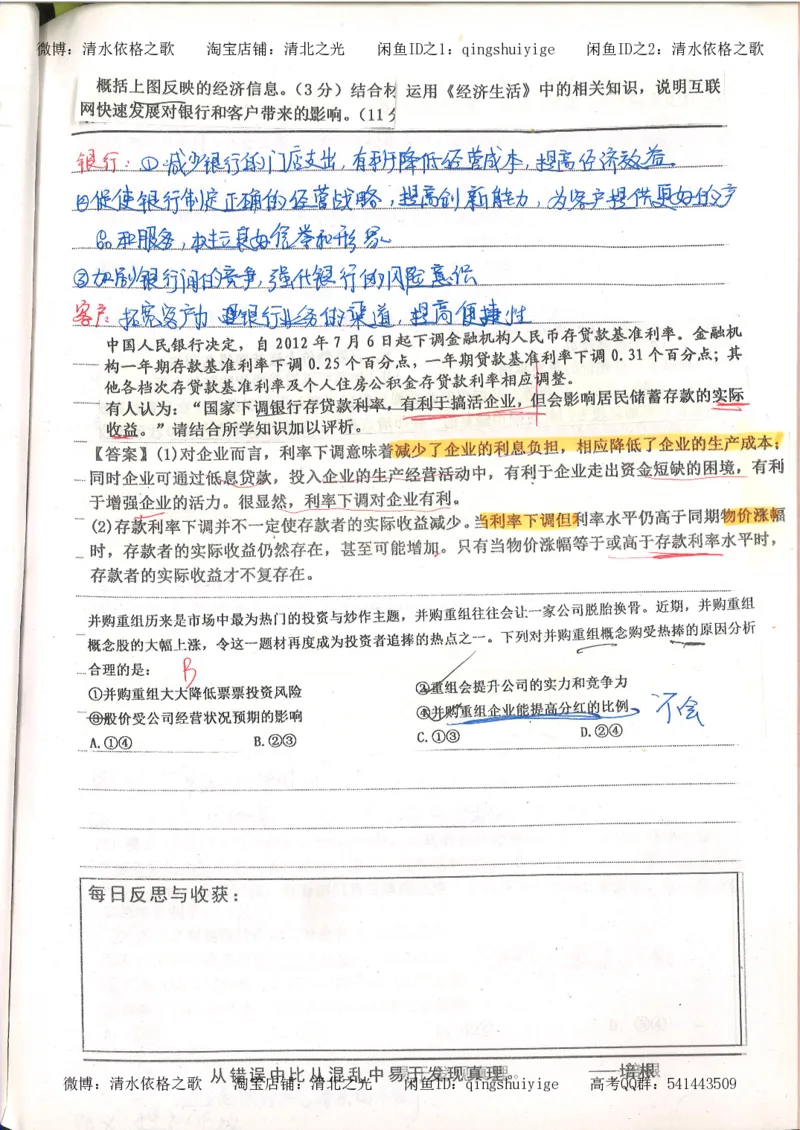 微博：清水依格之歌 淘宝店铺：清北之光 闲鱼ID之1：qingshuiyige 闲鱼ID之2：清水依格之歌
概括上图反映的经济信息。（3分）结合材 运用《经济生活》中的相关知识，说明互联
网快速发展对银行和客户带来的影响。（11分
银行：①减少银行的门店支出，有利于降低经营成本，提高经济效益。
②促使银行制定正确的经营战略，提高创新能力，为客户提供更好的产
品和服务，树立良好信誉和形象
③加剧银行间的竞争，强化银行的风险意识
客户：拓宽客户办理银行业务的渠道，提高便捷性
中国人民银行决定，自2012年7月6日起下调金融机构人民币存贷款基准利率。金融机
构一年期存款基准利率下调0.25个百分点，一年期贷款基准利率下调0.31个百分点；其
他各档次存贷款基准利率及个人住房公积金存贷款利率相应调整。
有人认为：“国家下调银行存贷款利率，有利于搞活企业，但会影响居民储蓄存款的实际
收益。”请结合所学知识加以评析。
【答案】(1)对企业而言，利率下调意味着减少了企业的利息负担，相应降低了企业的生产成本；
同时企业可通过低息贷款，投入企业的生产经营活动中，有利于企业走出资金短缺的困境，有利
于增强企业的活力。很显然，利率下调对企业有利。
(2)存款利率下调并不一定使存款者的实际收益减少。当利率下调但利率水平仍高于同期物价涨幅
时，存款者的实际收益仍然存在，甚至可能增加。只有当物价涨幅等于或高于存款利率水平时，
存款者的实际收益才不复存在。
并购重组历来是市场中最为热门的投资与炒作主题，并购重组往往会让一家公司脱胎换骨。近期，并购重组
概念股的大幅上涨，令这一题材再度成为投资者追捧的热点之一。下列对并购重组概念购受热捧的原因分析
合理的是： B
①并购重组大大降低票票投资风险 ②重组会提升公司的实力和竞争力
③股价受公司经营状况预期的影响 ④并购重组企业能提高分红的比例 不会
A.①④ B.②③ C.①③ D.②④
每日反思与收获：
从错误中比从混乱中易于发现真理。 ——培根
微博：清水依格之歌 淘宝店铺：清北之光 闲鱼ID：qingshuiyige 高考QQ群：541443509